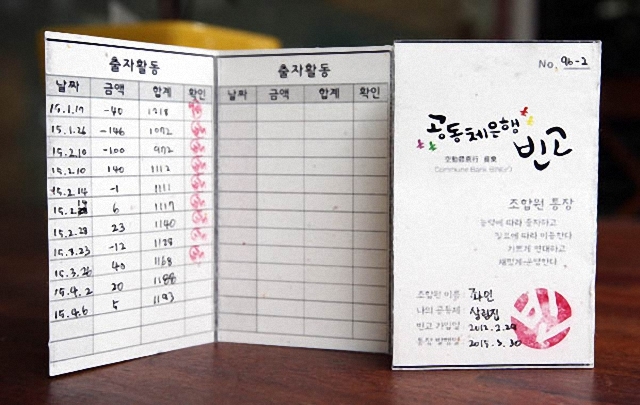 출자활동
날짜 금액 합계 확인
15.1.17 -40 1218
15.1.26 -146 1072
15.2.10 -100 972
15.2.10 140 1112
15.2.14 -1 1111
6 1117
15.2.28 23 1140
-12 1128
15.3.26 40 1168
15.4.2 20 1188
15.4.6 5 1193
출자활동
날짜 금액 합계 확인
No. 96-2
공동체은행
빈고
Commune Bank
조합원 통장
능력에 따라 출자하고
필요에 따라 이용한다
기쁘게 연대하고
재밌게 운영한다
조합원 이름 : 좌인
나의 공동체 : 살림집
빈고 가입일 : 2012.2.29
통장 발행일 : 2015.3.30
빈